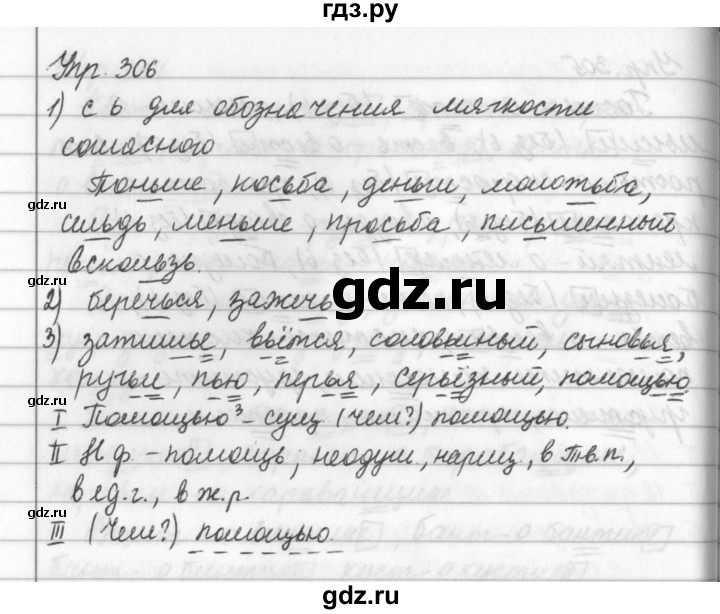 гдз.ру
Упр. 306
1) с ь для обозначения мягкости
согласного
Тоньше, косьба, деньги, молотьба,
gdz.ru gdz.ru
сельдь, меньше, просьба, письменный
вскользь.
gdz.ru
2) беречься, зажечь
gdz.ru
3) затишье, вьётся, соловьиный, сыновья,
ручьи, пью, перья, серьёзный, помощью.
I Помощью³ - сущ (чем?) помощью.
gdz.ru gdz.ru
II Н ф. - помощь, неодуш, нариц, в Тв.п.,
в ед.г., в ж.р.
III (Чем?) помощью.
gdz.ru gdz.ru